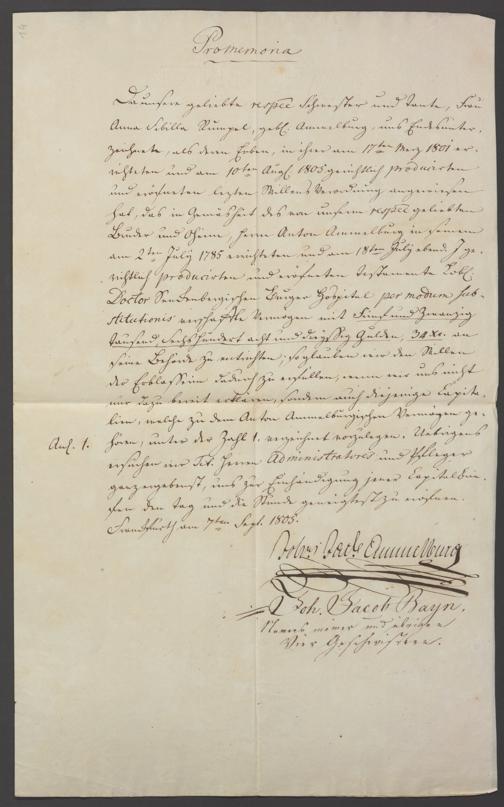 Promemoria
Da unsere geliebte respee Schwester und Tante, Frau
Anna Sibilla Rumpel, gebl. Ammelburg, uns Endesunter-
zeichnete, als deren Erben, in ihrer am 17ten Merz 1801 er-
richteten und am 10ten Augl. 1805 gerichtlich producirten
und eröfneten lezten Willens Verordnung angewiesen
hat, das in Gemäsheit des von unserm respee geliebten
Bruder und Oheim, Herrn Anton Ammelburg in seinem
am 2ten July 1785 errichteten und am 18ten July ebend. J. ge-
richtlich producirten und eröfneten Testamente Löbl.
Doctor Senckenbergischen Burger Hospital per modum sub-
stitutionis vermachte Vermögen mit Fünf und Zwanzig
tausend, Sechshundert acht und dreyssig Gulden, 34 Xr. an
seine Behörde zu entrichten; so glauben wir den Willen
der Erblasserin dadurch zu erfüllen, wenn wir uns nicht
nur dazu bereit erklären, sondern auch diejenige Capita-
lien, welche zu dem Anton Ammelburgischen Vermögen ge-
Anl. 1. hören, unter der Zahl 1. verzeichnet vorzulegen. Uebrigens
ersuchen wir Tit. Herren Administratores und Pfleger
ganz ergebenst, uns zur Einhändigung jener Capitalbrie-
fen den Tag und die Stunde geneigtest zu eröfnen.
Franckfurth am 7ten Sept. 1805.
Ammelburg
Joh. Jacob Bayn.
Namens meiner und übrigen
Vier Geschwistern.